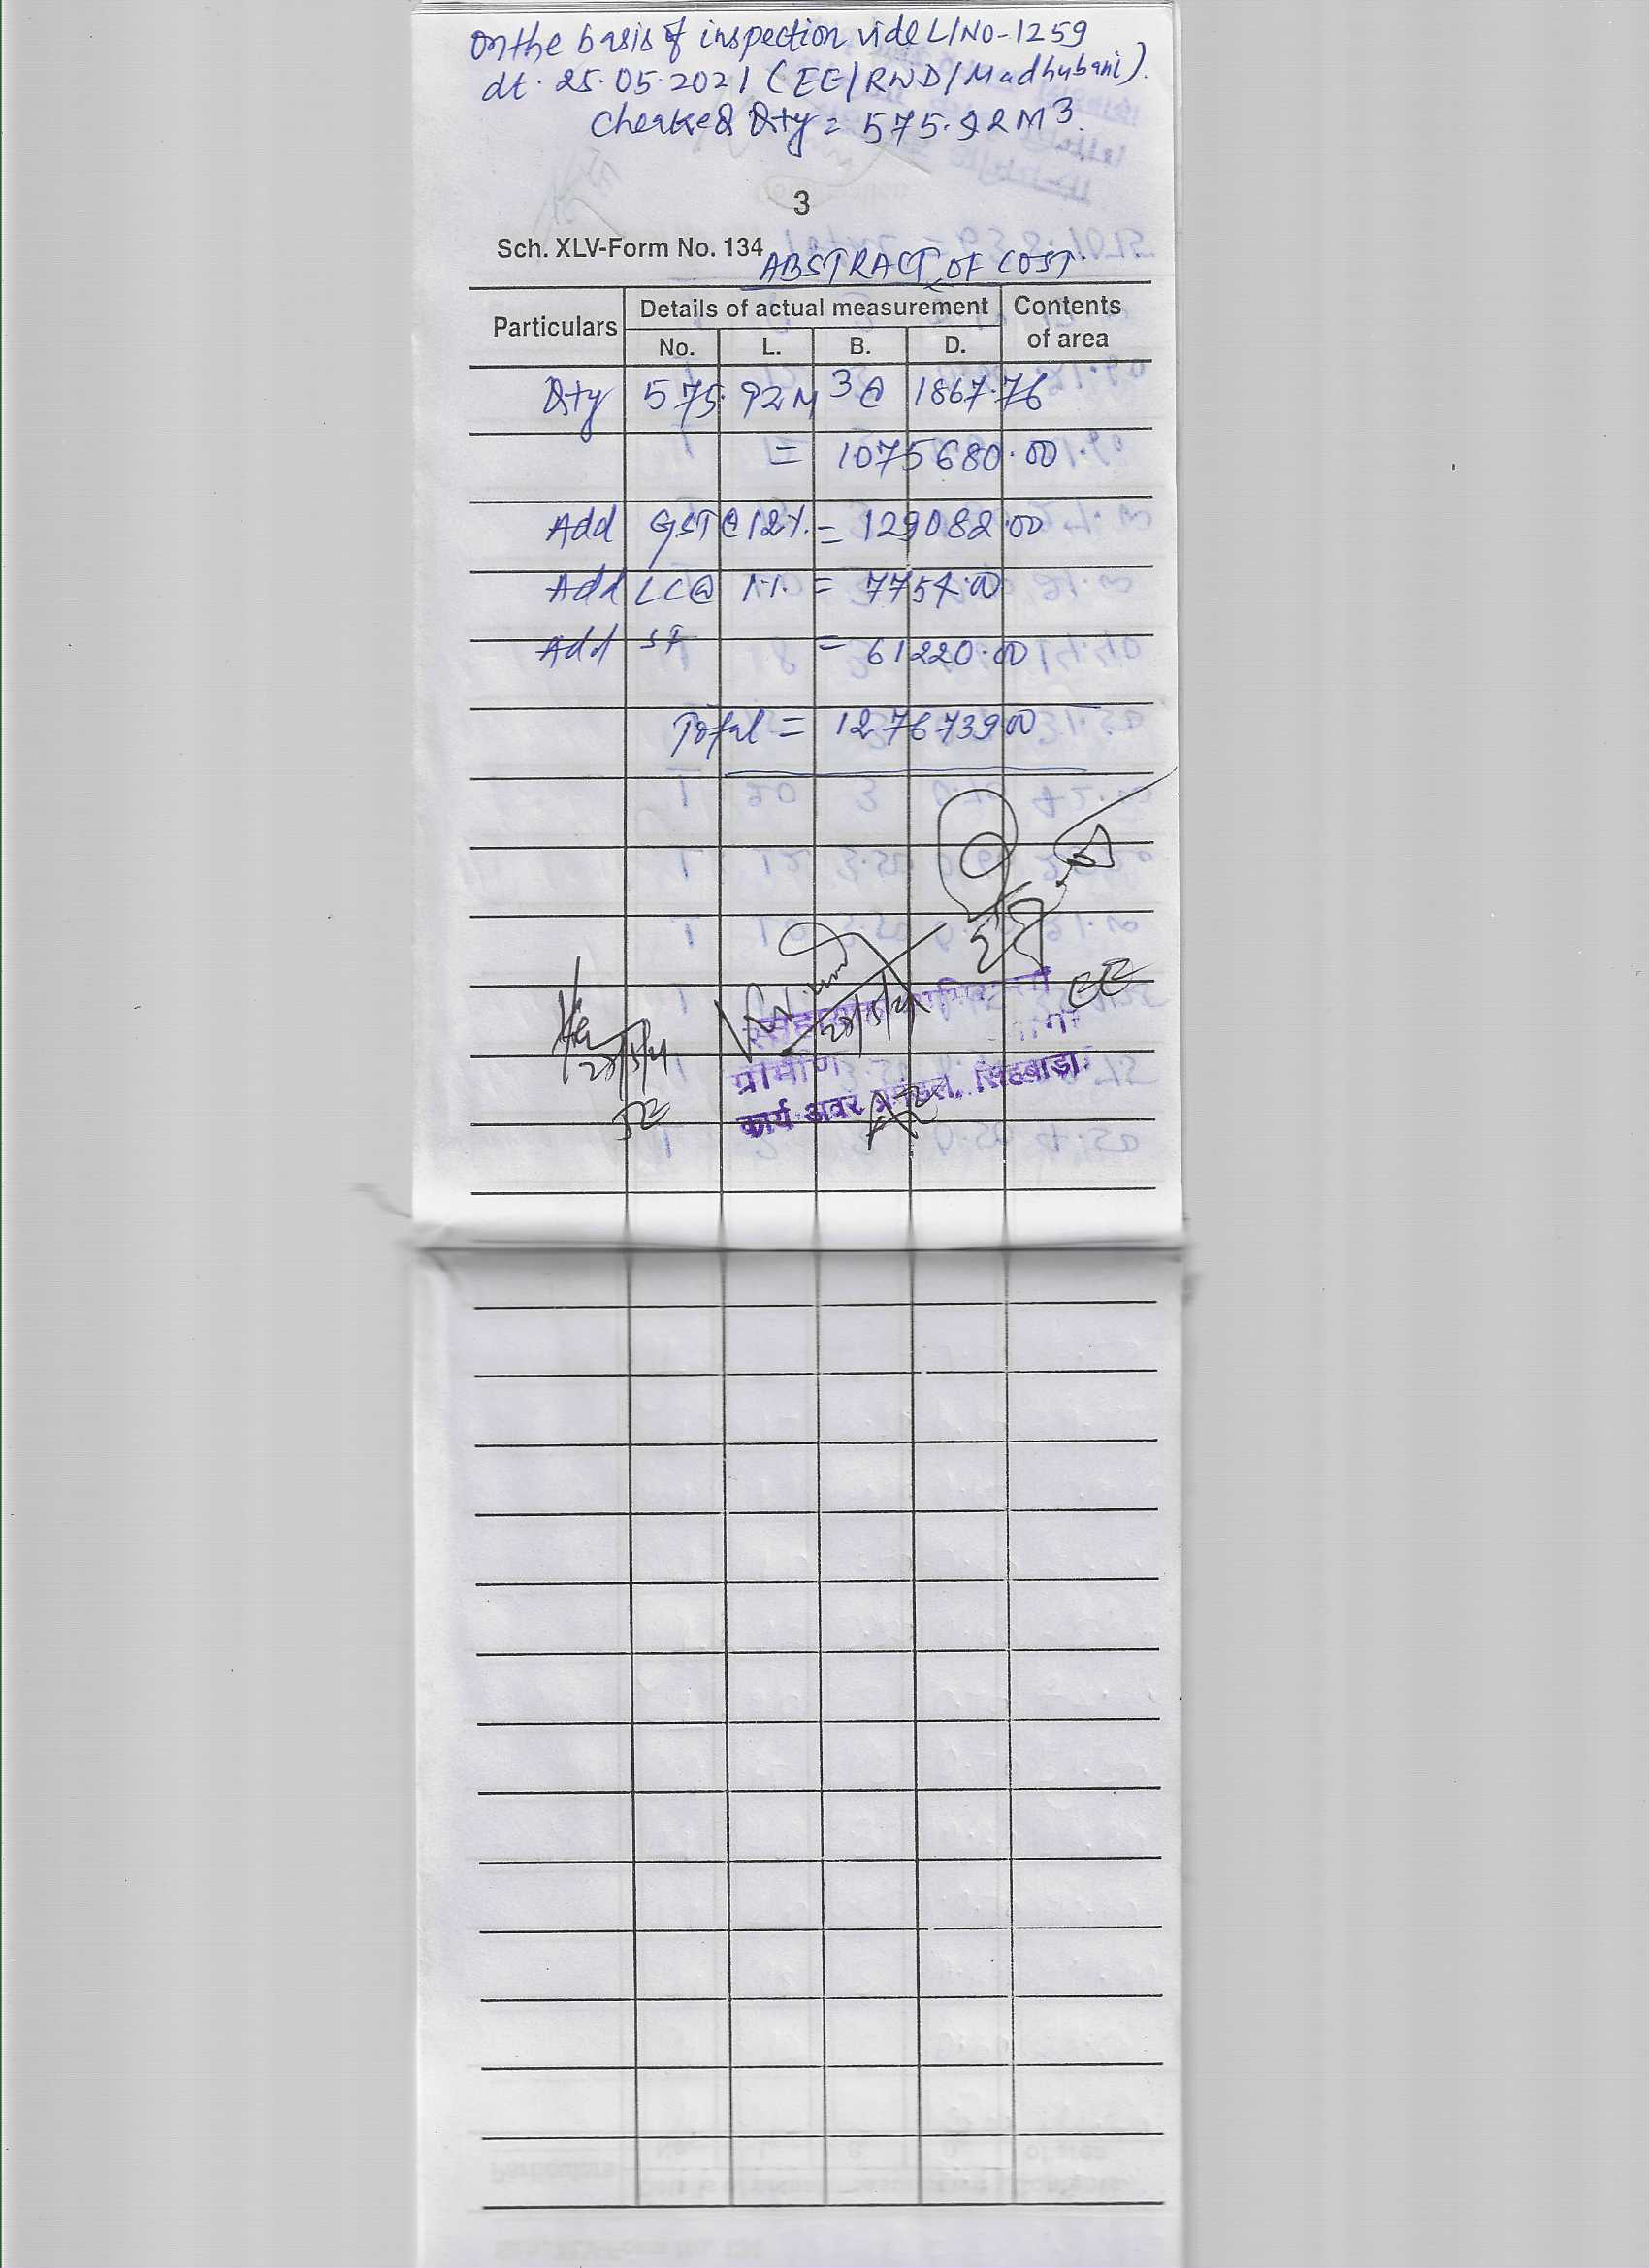 On the basis of inspection vide L/No-1259
dt. 25.05.2021 (EE/RWD/Madhubani).
Cheaked Qty = 575.92 M3.
3
Sch. XLV-Form No. 134
ABSTRACT OF COST.
Particulars Details of actual measurement Contents of area
No. L. B. D.
Qty 575.92 M3 @ 1867.76
= 1075680.00
Add GST @ 12%. = 129082.00
Add LC @ 1%. = 7754.00
Add SF = 61220.00
Total = 1276739.00
EE
28/5/21
28/5/21
ग्रामीण
कार्य अवर प्रमंडल, सिंहवाड़ा
JE
AE